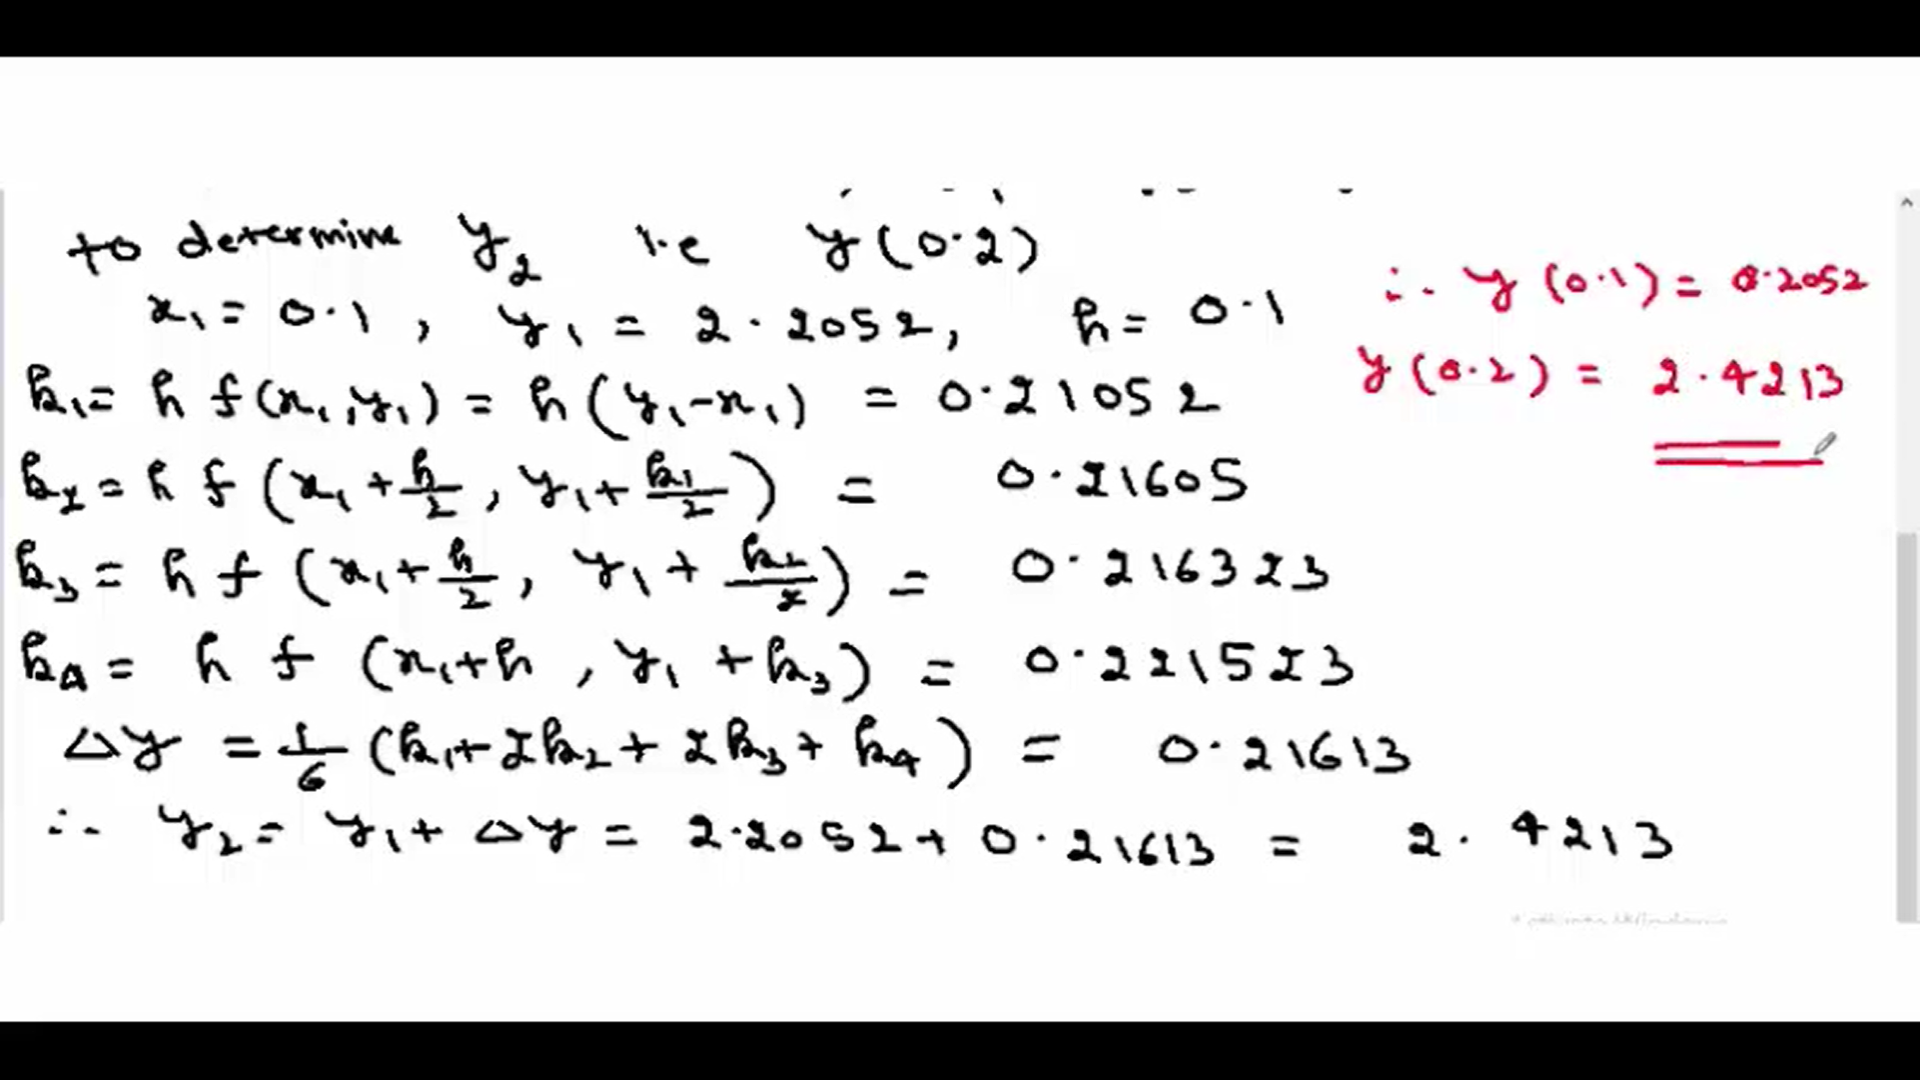 to determine y₂ i.e y(0.2)
x₁ = 0.1, y₁ = 2.2052, h = 0.1
k₁ = h f(x₁, y₁) = h(y₁-x₁) = 0.21052
k₂ = h f(x₁ + h/2, y₁ + k₁/2) = 0.21605
k₃ = h f(x₁ + h/2, y₁ + k₂/2) = 0.216323
k₄ = h f(x₁+h, y₁ + k₃) = 0.221523
Δy = 1/6 (k₁+2k₂+2k₃+k₄) = 0.21613
∴ y₂ = y₁+ Δy = 2.2052 + 0.21613 = 2.4213
∴ y(0.1) = 0.2052
y(0.2) = 2.4213